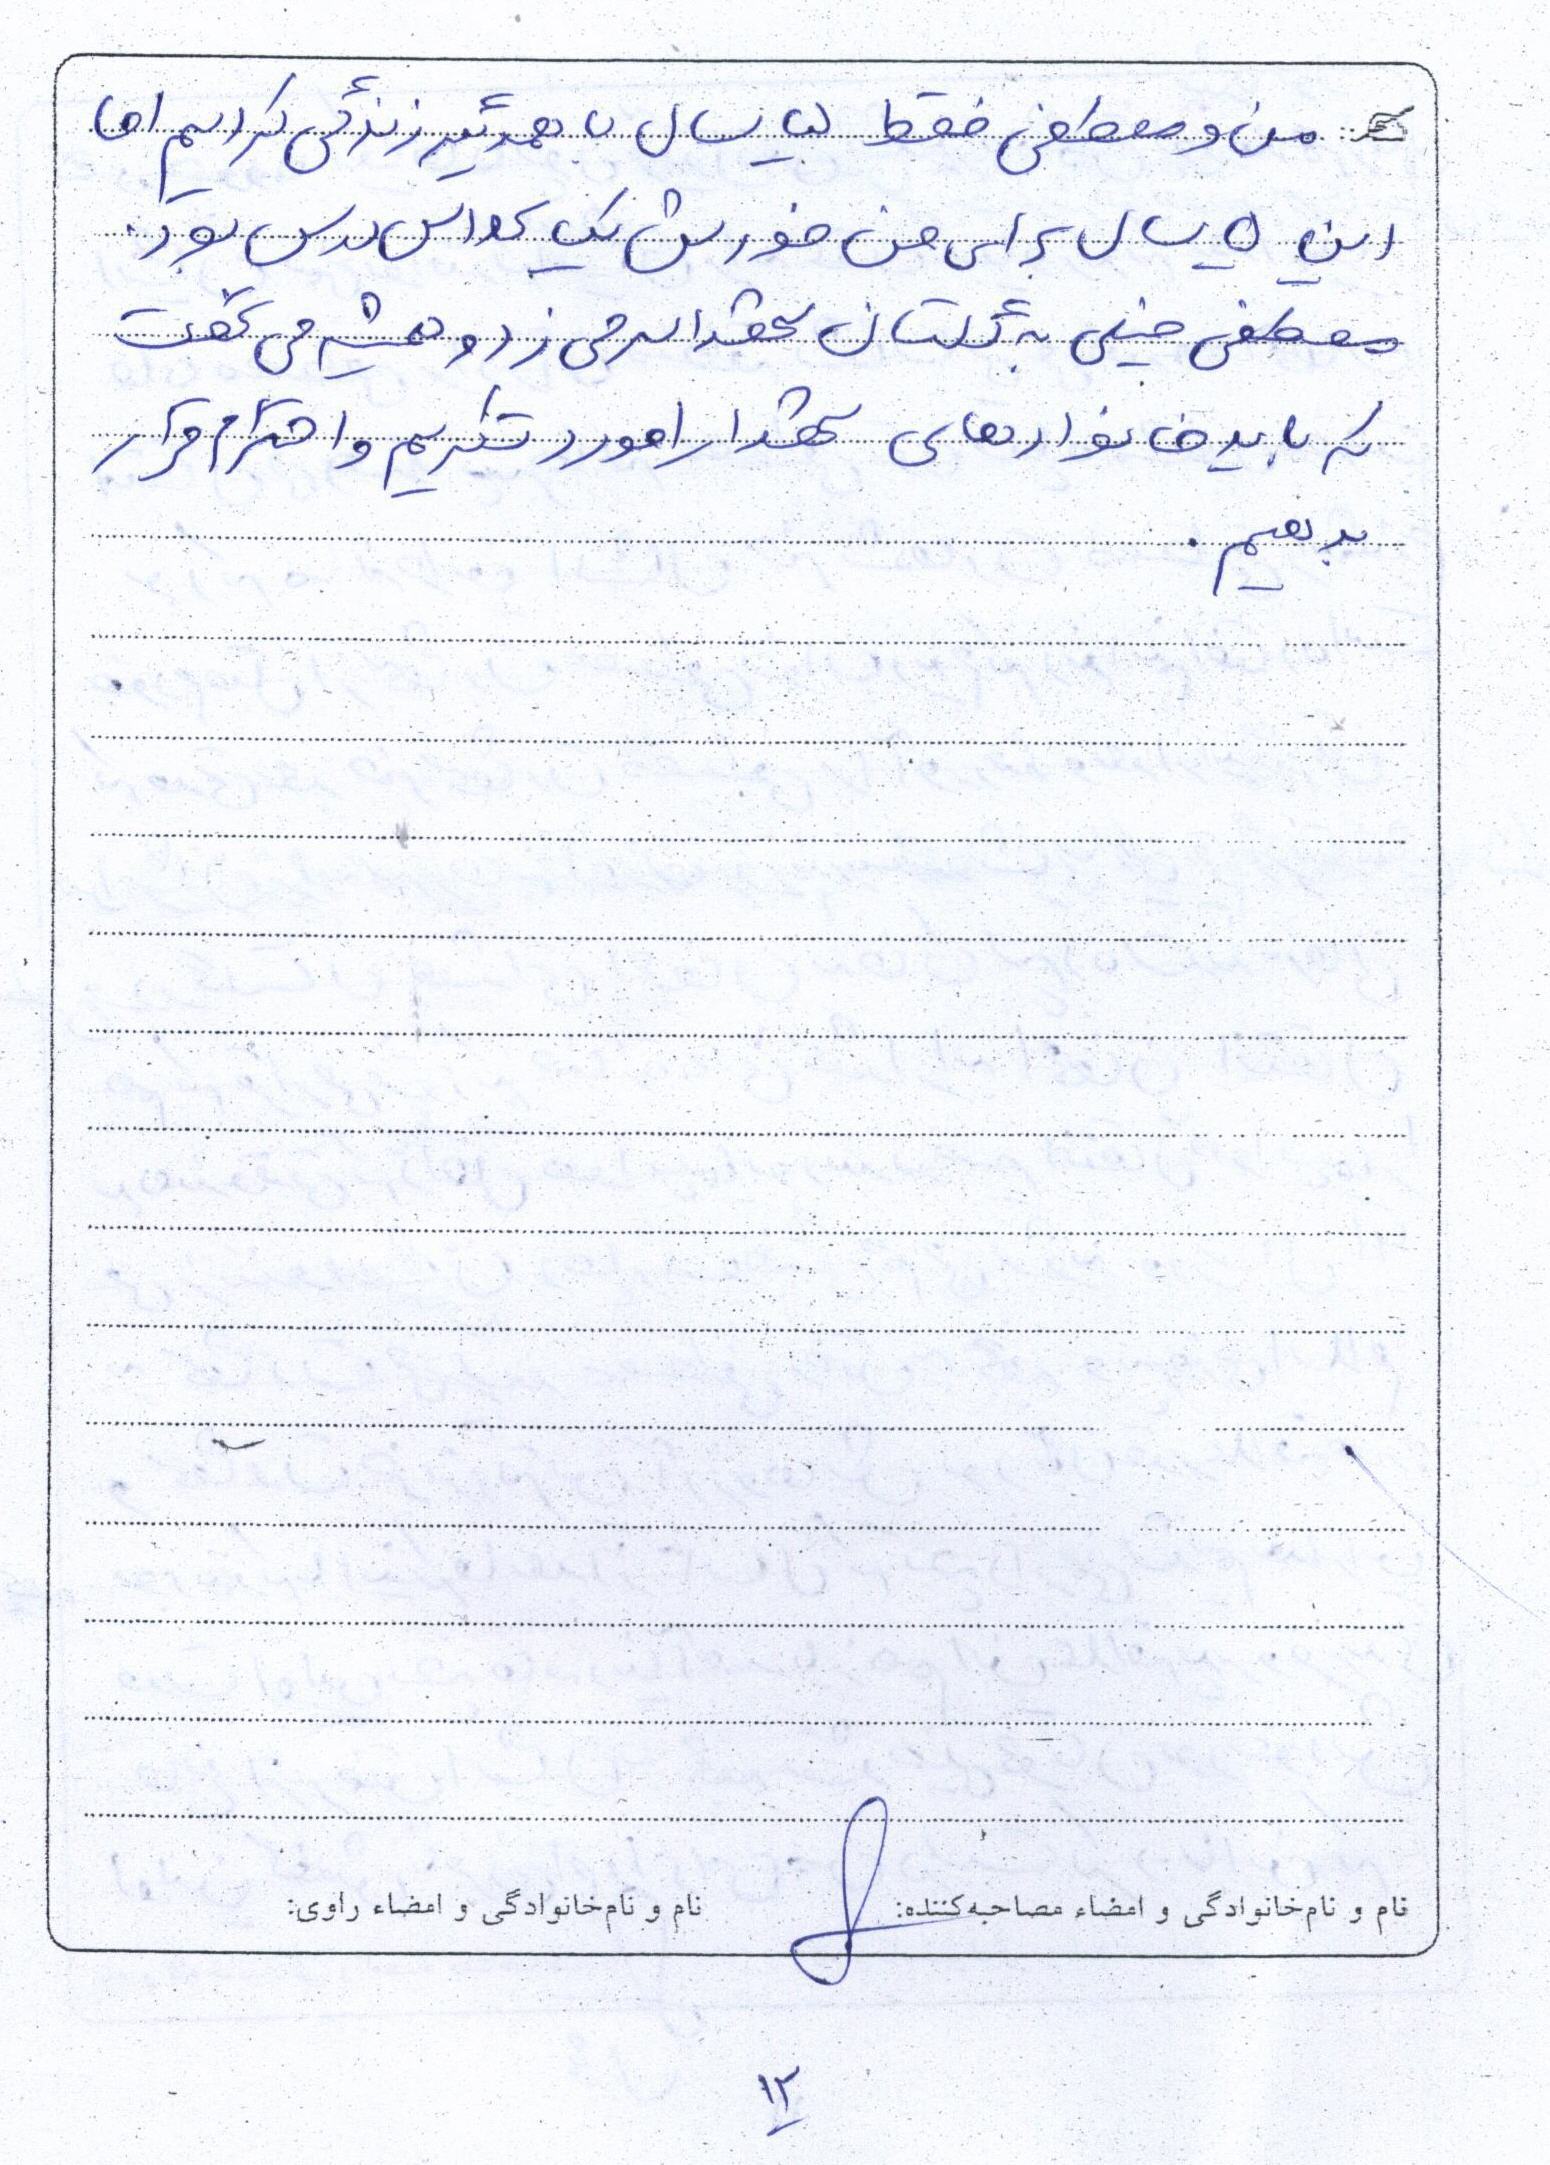 من و مصطفی فقط ۵ سال با همدیگر زندگی کردیم اما
این ۵ سال برای من خودش یک کلاس درس بود.
مصطفی خیلی به گلستان شهدا سر می زد و همیشه می گفت
که باید خانواده های شهدا را مورد تکریم و احترام قرار
بدهیم.
نام و نام‌خانوادگی و امضاء مصاحبه‌کننده: نام و نام‌خانوادگی و امضاء راوی:
۱۲